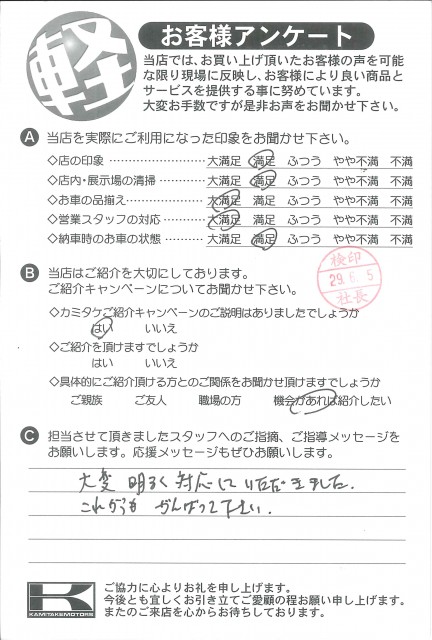 軽
お客様アンケート
当店では、お買い上げ頂いたお客様の声を可能
な限り現場に反映し、お客様により良い商品と
サービスを提供する事に努めています。
大変お手数ですが是非お声をお聞かせ下さい。
A 当店を実際にご利用になった印象をお聞かせ下さい。
◇店の印象 ………………… 大満足 満足 ふつう やや不満 不満
◇店内・展示場の清掃 ………… 大満足 満足 ふつう やや不満 不満
◇お車の品揃え ……………… 大満足 満足 ふつう やや不満 不満
◇営業スタッフの対応 ………… 大満足 満足 ふつう やや不満 不満
◇納車時のお車の状態 ………… 大満足 満足 ふつう やや不満 不満
検印
29.6.5
社長
B 当店はご紹介を大切にしております。
ご紹介キャンペーンについてお聞かせ下さい。
◇カミタケご紹介キャンペーンのご説明はありましたでしょうか
はい いいえ
◇ご紹介を頂けますでしょうか
はい いいえ
◇具体的にご紹介頂ける方とのご関係をお聞かせ頂けますでしょうか
ご親族 ご友人 職場の方 機会があれば紹介したい
C 担当させて頂きましたスタッフへのご指摘、ご指導メッセージを
お願いします。応援メッセージもぜひお願いします。
大変明るく対応していただきました.
これからもがんばって下さい.
K
KAMITAKEMOTORS
ご協力に心よりお礼を申し上げます。
今後とも宜しくお引き立てご愛顧の程お願い申し上げます。
またのご来店を心からお待ちしております。